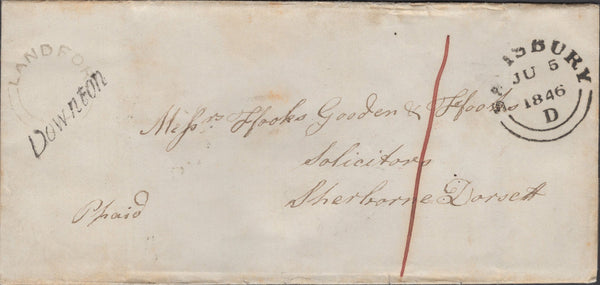 LANDFOR
Downton
SALISBURY
JU 5
1846
D
Messrs Ffooks Gooden & Ffooks
Solicitors
Sherborne Dorsett
Ppaid
1